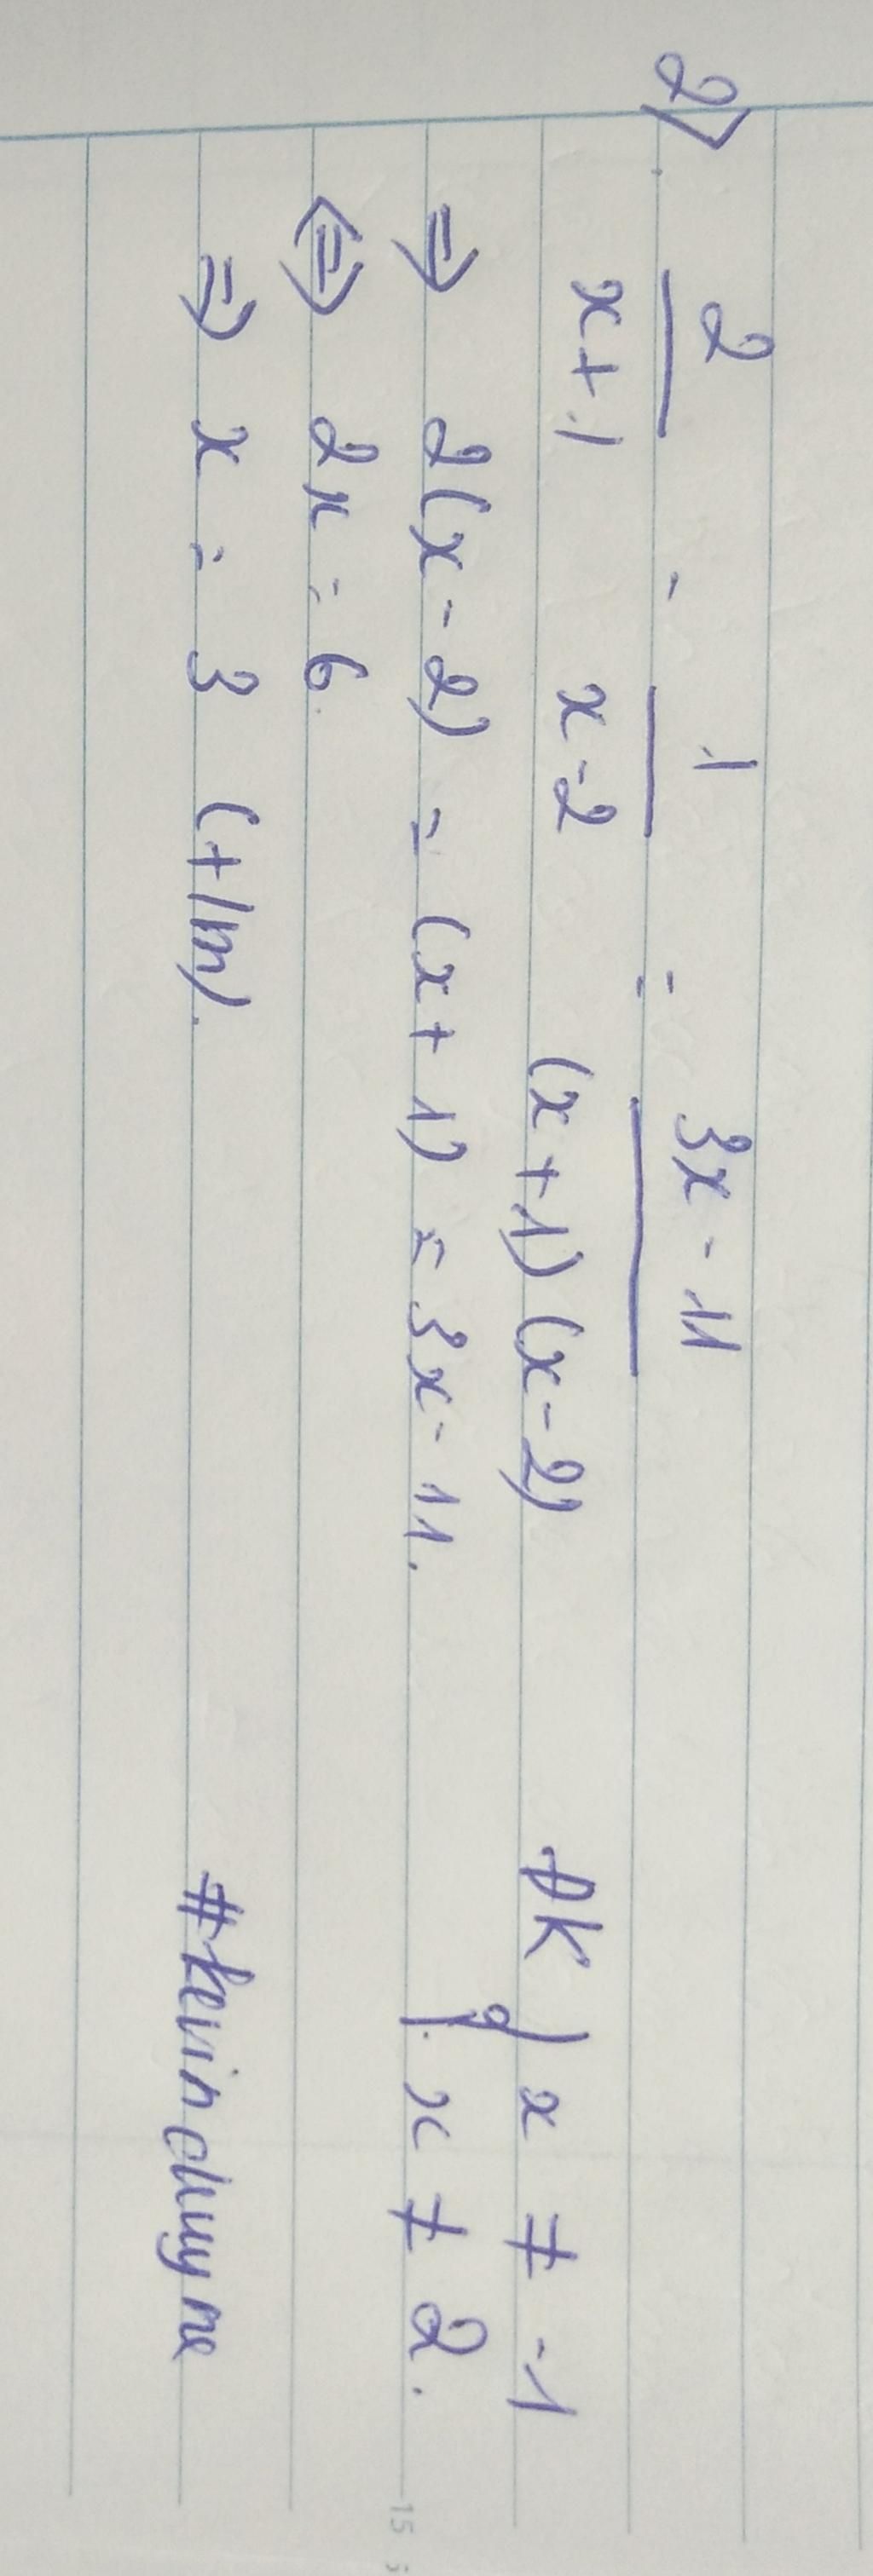 2> 2/(x+1) - 1/(x-2) = (3x-11)/((x+1)(x-2))
ĐK { x ≠ -1
x ≠ 2.
=> 2(x-2) = (x+1) = 3x-11.
<=> 2x = 6.
=> x = 3 (t/m).
#kevinduyne
15